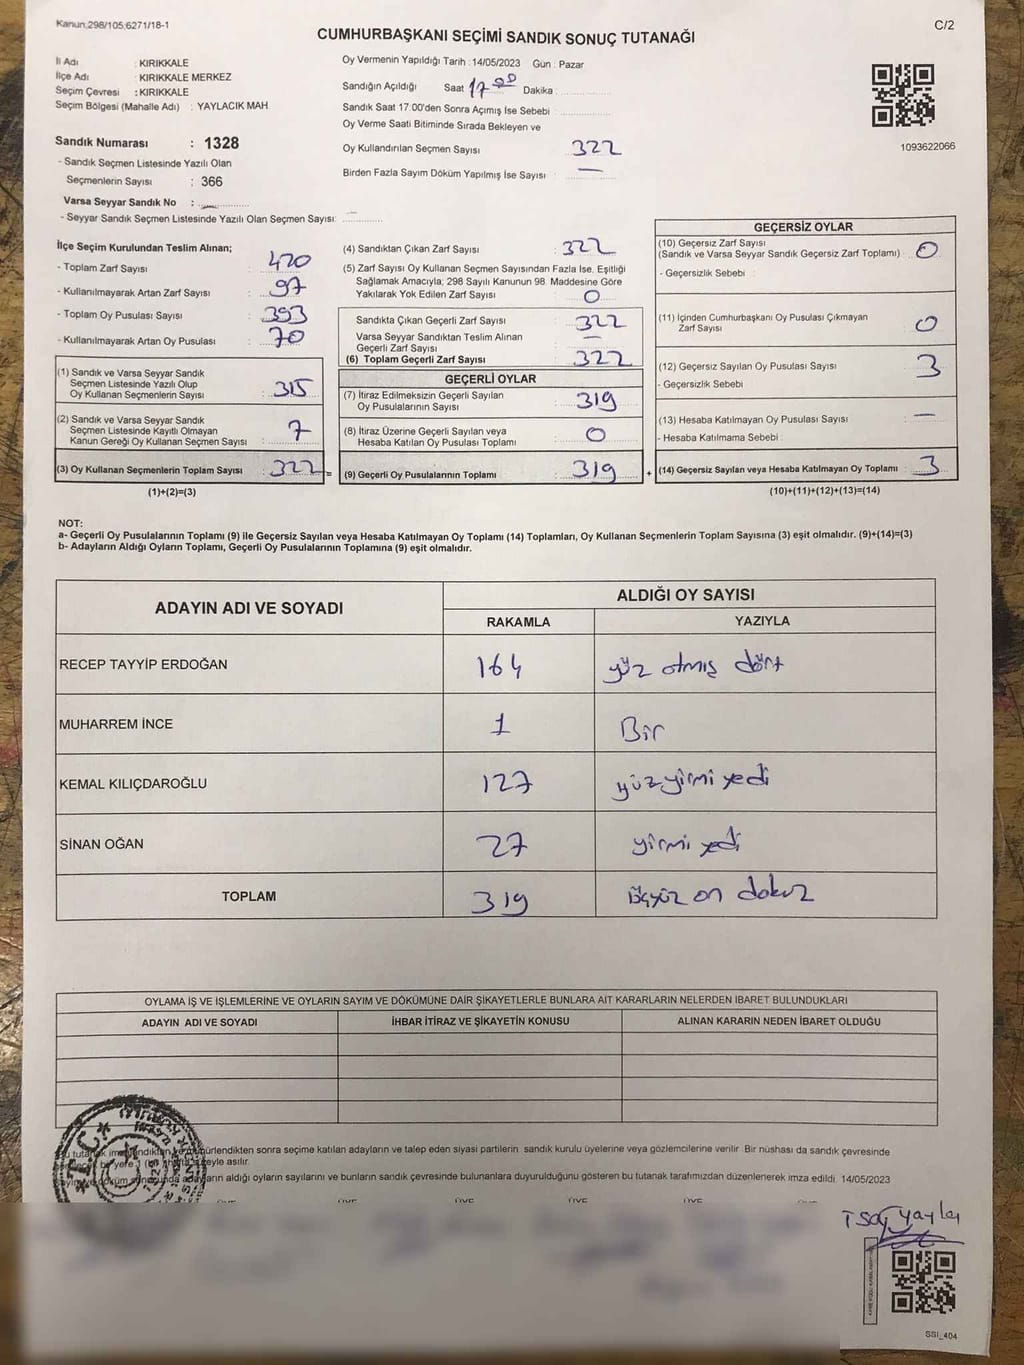 Kanun;298/105,6271/18-1
C/2
CUMHURBAŞKANI SEÇİMİ SANDIK SONUÇ TUTANAĞI
İl Adı : KIRIKKALE
İlçe Adı : KIRIKKALE MERKEZ
Seçim Çevresi : KIRIKKALE
Seçim Bölgesi (Mahalle Adı) : YAYLACIK MAH.
Oy Vermenin Yapıldığı Tarih : 14/05/2023 Gün : Pazar
Sandığın Açıldığı Saat 17 00 Dakika :
Sandık Saat 17:00'den Sonra Açımış İse Sebebi :
Oy Verme Saati Bitiminde Sırada Bekleyen ve
Oy Kullandırılan Seçmen Sayısı 322
Birden Fazla Sayım Döküm Yapılmış İse Sayısı : —
1093622066
Sandık Numarası : 1328
- Sandık Seçmen Listesinde Yazılı Olan
Seçmenlerin Sayısı : 366
Varsa Seyyar Sandık No : —
- Seyyar Sandık Seçmen Listesinde Yazılı Olan Seçmen Sayısı: —
İlçe Seçim Kurulundan Teslim Alınan;
- Toplam Zarf Sayısı : 420
- Kullanılmayarak Artan Zarf Sayısı : 97
- Toplam Oy Pusulası Sayısı : 393
- Kullanılmayarak Artan Oy Pusulası : 70
(1) Sandık ve Varsa Seyyar Sandık
Seçmen Listesinde Yazılı Olup
Oy Kullanan Seçmenlerin Sayısı : 315
(2) Sandık ve Varsa Seyyar Sandık
Seçmen Listesinde Kayıtlı Olmayan
Kanun Gereği Oy Kullanan Seçmen Sayısı : 7
(3) Oy Kullanan Seçmenlerin Toplam Sayısı : 322
(1)+(2)=(3)
(4) Sandıktan Çıkan Zarf Sayısı : 322
(5) Zarf Sayısı Oy Kullanan Seçmen Sayısından Fazla Ise, Eşitliği
Sağlamak Amacıyla; 298 Sayılı Kanunun 98. Maddesine Göre
Yakılarak Yok Edilen Zarf Sayısı : 0
Sandıkta Çıkan Geçerli Zarf Sayısı : 322
Varsa Seyyar Sandıktan Teslim Alınan
Geçerli Zarf Sayısı : —
(6) Toplam Geçerli Zarf Sayısı : 322
GEÇERLİ OYLAR
(7) İtiraz Edilmeksizin Geçerli Sayılan
Oy Pusulalarının Sayısı : 319
(8) İtiraz Üzerine Geçerli Sayılan veya
Hesaba Katılan Oy Pusulası Toplamı : 0
= (9) Geçerli Oy Pusulalarının Toplamı : 319 +
GEÇERSİZ OYLAR
(10) Geçersiz Zarf Sayısı
(Sandık ve Varsa Seyyar Sandık Geçersiz Zarf Toplamı) : 0
- Geçersizlik Sebebi :
(11) İçinden Cumhurbaşkanı Oy Pusulası Çıkmayan
Zarf Sayısı : 0
(12) Geçersiz Sayılan Oy Pusulası Sayısı : 3
- Geçersizlik Sebebi :
(13) Hesaba Katılmayan Oy Pusulası Sayısı : —
- Hesaba Katılmama Sebebi :
(14) Geçersiz Sayılan veya Hesaba Katılmayan Oy Toplamı : 3
(10)+(11)+(12)+(13)=(14)
NOT:
a- Geçerli Oy Pusulalarının Toplamı (9) ile Geçersiz Sayılan veya Hesaba Katılmayan Oy Toplamı (14) Toplamları, Oy Kullanan Seçmenlerin Toplam Sayısına (3) eşit olmalıdır. (9)+(14)=(3)
b- Adayların Aldığı Oyların Toplamı, Geçerli Oy Pusulalarının Toplamına (9) eşit olmalıdır.
ADAYIN ADI VE SOYADI ALDIĞI OY SAYISI
RAKAMLA YAZIYLA
RECEP TAYYİP ERDOĞAN 164 yüz otmış dört
MUHARREM İNCE 1 Bir
KEMAL KILIÇDAROĞLU 127 yüz yirmi yedi
SİNAN OĞAN 27 yirmi yedi
TOPLAM 319 üçyüz on dokuz
OYLAMA İŞ VE İŞLEMLERİNE VE OYLARIN SAYIM VE DÖKÜMÜNE DAİR ŞİKAYETLERLE BUNLARA AİT KARARLARIN NELERDEN İBARET BULUNDUKLARI
ADAYIN ADI VE SOYADI İHBAR İTİRAZ VE ŞİKAYETİN KONUSU ALINAN KARARIN NEDEN İBARET OLDUĞU
sonra seçime katılan adayların ve talep eden siyasi partilerin sandık kurulu üyelerine veya gözlemcilerine verilir. Bir nüshası da sandık çevresinde
asılır.
aldığı oyların sayılarını ve bunların sandık çevresinde bulunanlara duyurulduğunu gösteren bu tutanak tarafımızdan düzenlenerek imza edildi. 14/05/2023
T.C.
ÜYE ÜYE ÜYE ÜYE
SSI_404